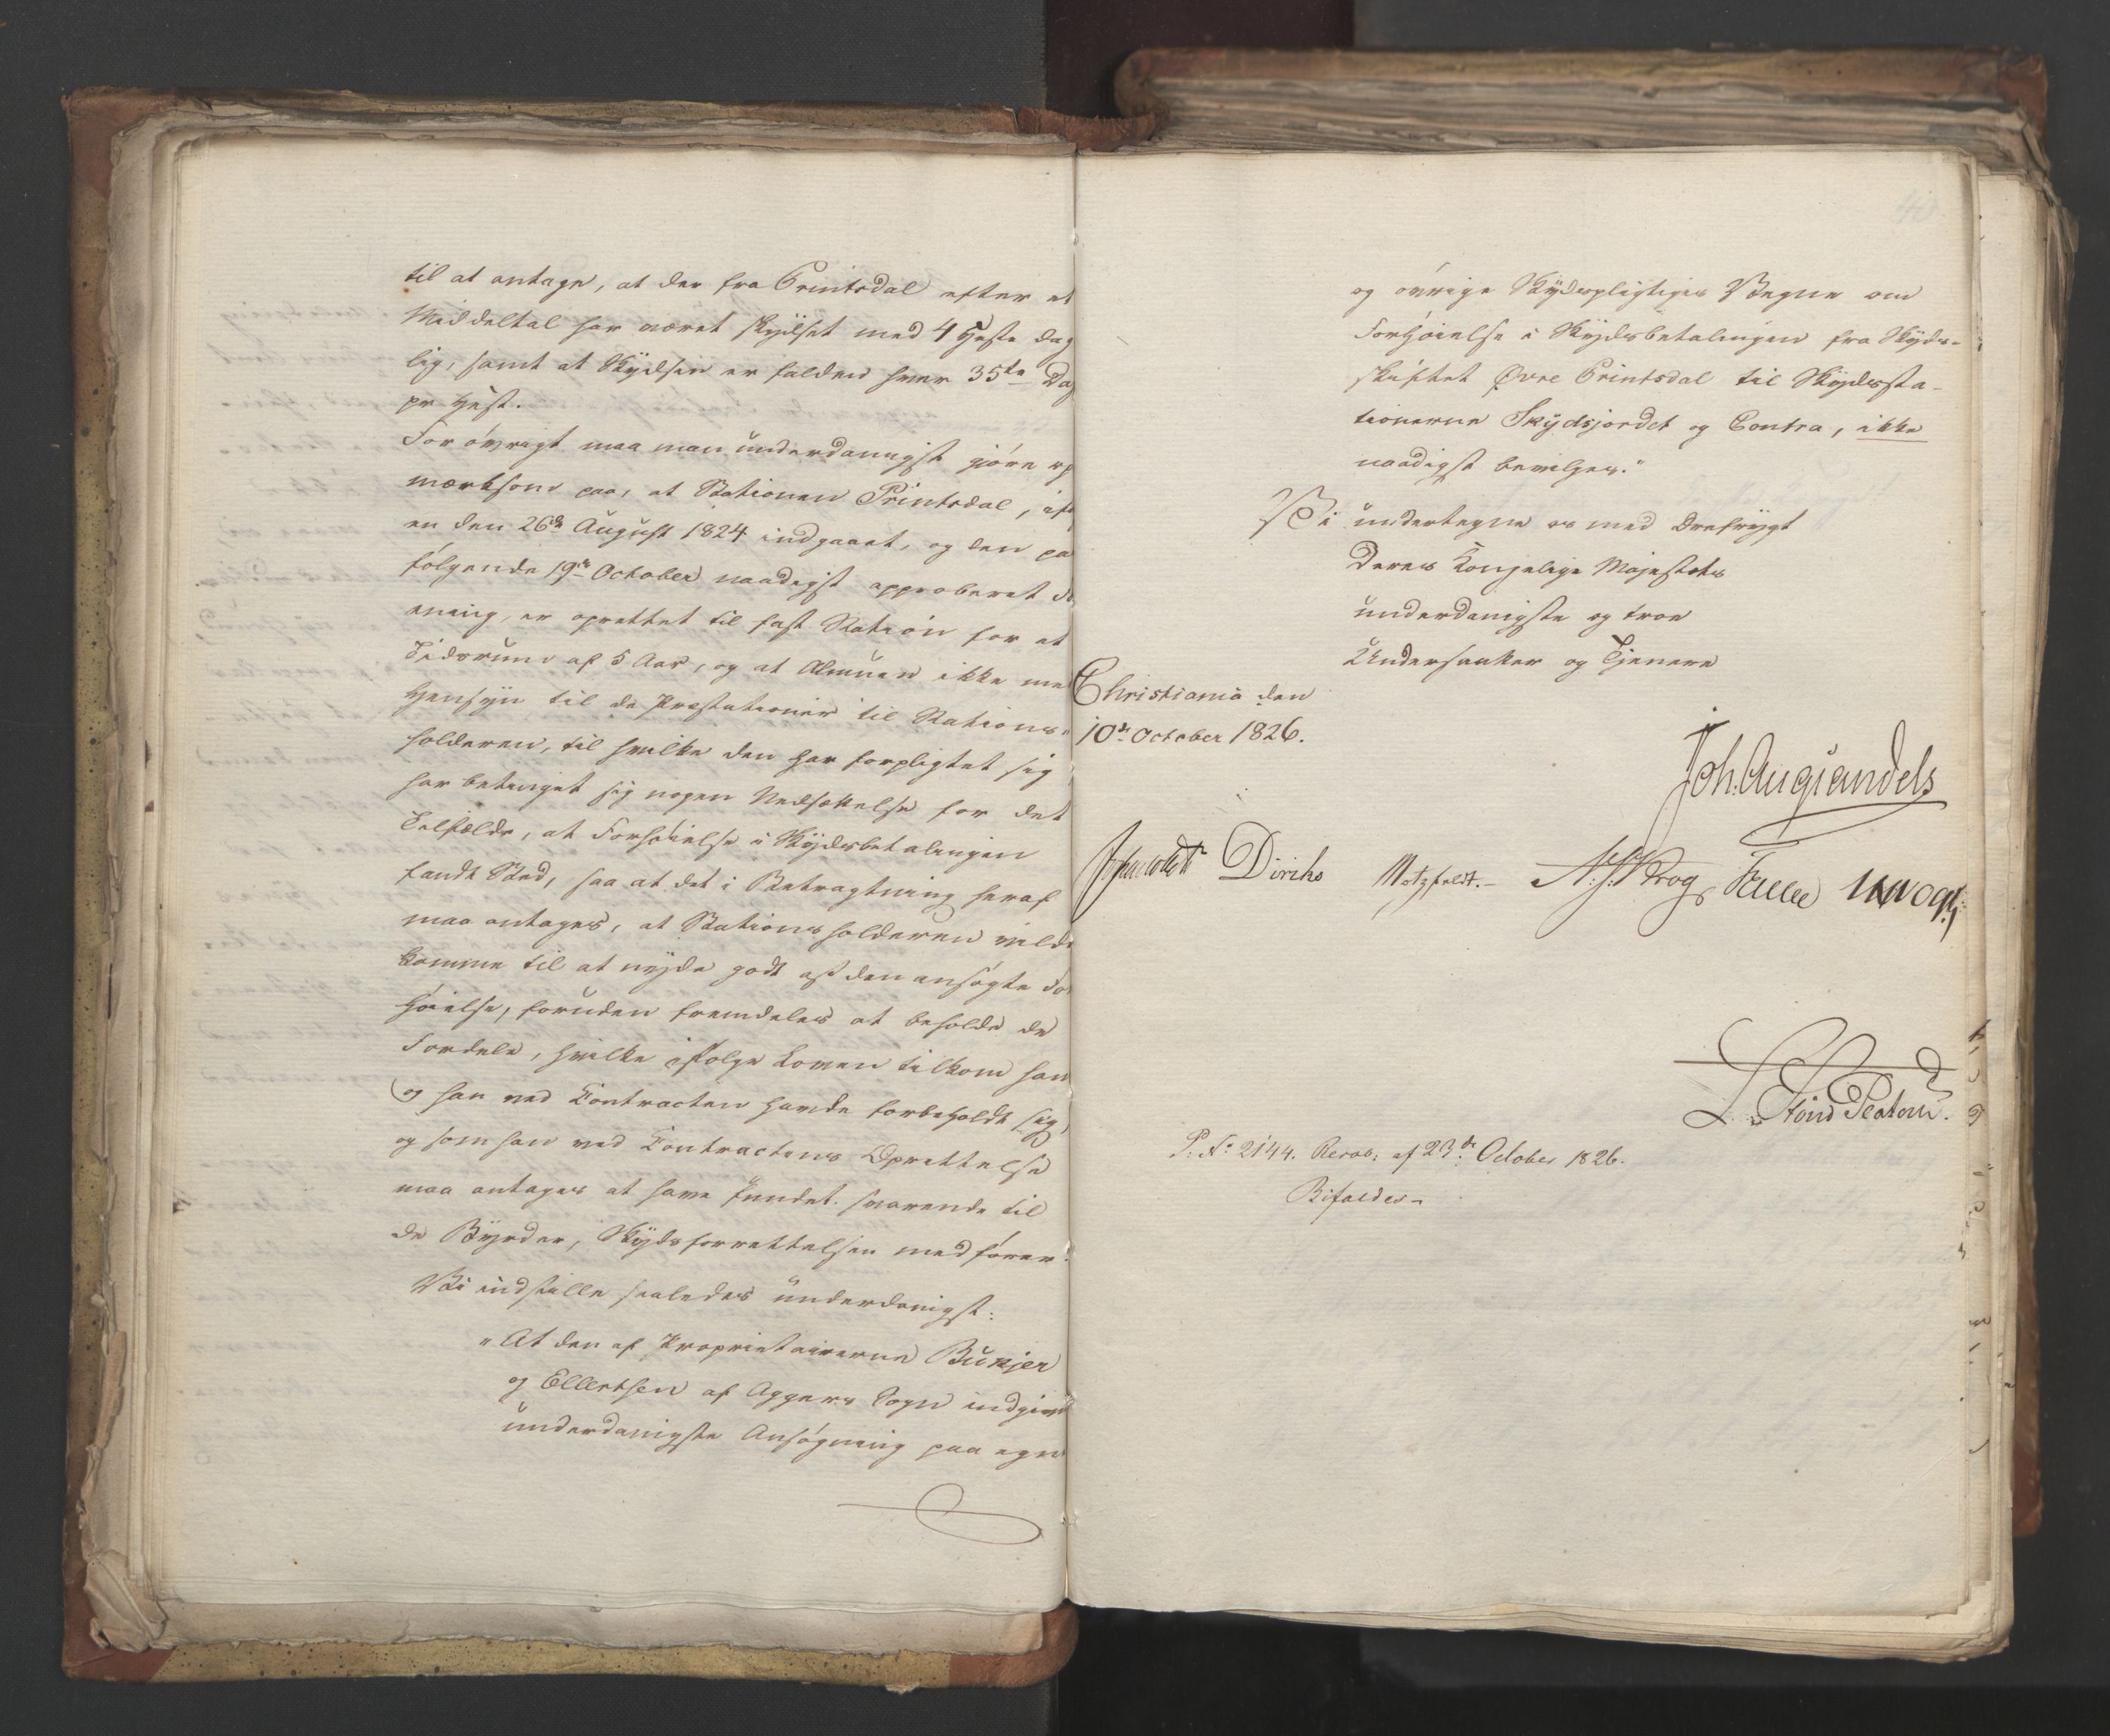 til at antage, at der fra Printsdal efter et
Middeltal har været skydset med 4 Heste dag
lig, samt at Skydsen er falden hver 35te Dag
pr Hest.
For øvrigt maa man underdanigst gjøre op
mærksom paa, at Stationen Printsdal, ifø
en den 26de August 1824 indgaaet, og den paa
følgende 19de October naadigst approberet Fo
ening, er oprettet til fast Station for et
Tidsrum af 5 Aar, og at Almuen ikke med
Hensyn til de Præstationer til Stations-
holderen, til hvilke den har forpligtet sig
har betinget sig nogen Nedsættelse for det
Tilfælde, at Forhøielse i Skydsbetalingen
fandt Sted, saa at det i Betragtning heraf
maa antages, at Stationsholderen vilde
komme til at nyde godt af den ansøgte For
høielse, foruden fremdeles at beholde de
Fordele, hvilke ifølge Loven tilkom ham
og han ved Contracten havde forbeholdt sig,
og som han ved Contractens Oprettelse
maa antages at have fundet svarende til
de Byrder, Skydsforrettelsen medfører.
Vi indstille saaledes underdanigst:
"At den af Proprietairerne Bunjer
og Ellertsen af Aggers Sogn indgivne
underdanigste Ansøgning paa egne
og øvrige Skydspligtiges Vegne om
Forhøielse i Skydsbetalingen fra Skyds-
skiftet Øvre Printsdal til Skydssta-
tionerne Skydsjordet og Contra, ikke
naadigst bevilges."
Vi undertegne os med Ærefrygt
Deres Kongelige Majestæts
underdanigste og troe
Undersaatter og Tjenere
Christiania den
10de October 1826.
Joh: Aug: Sandels
Diriks Motzfeldt.- Krog
P. No 2144. Resol: af 23de October 1826.
Bifaldes-